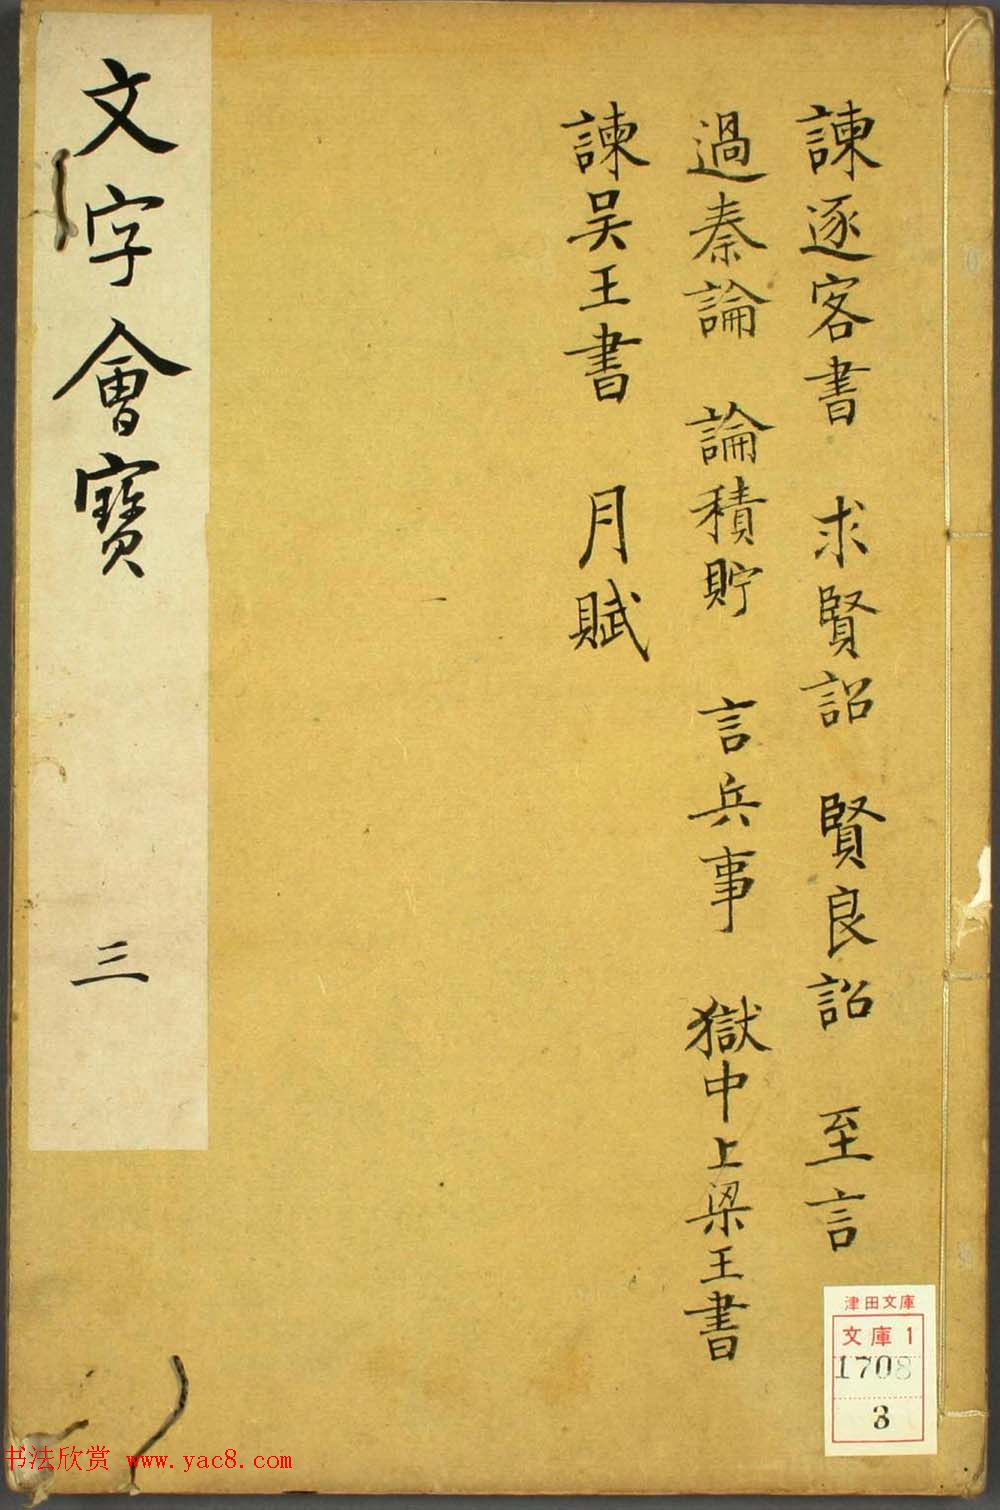 諫逐客書 求賢詔 賢良詔 至言
過秦論 論積貯 言兵事 獄中上梁王書
諫吴王書 月賦
文字會寳 三
津田文庫
文庫1
1708
3
书法欣赏 www.yac8.com